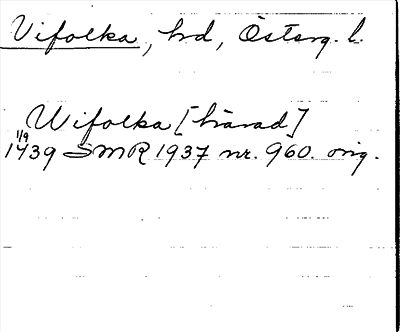 Vifolka, hd, Österg. l.
Wifolka [härad]
1/9
1439 SMR 1937 nr. 960. orig.